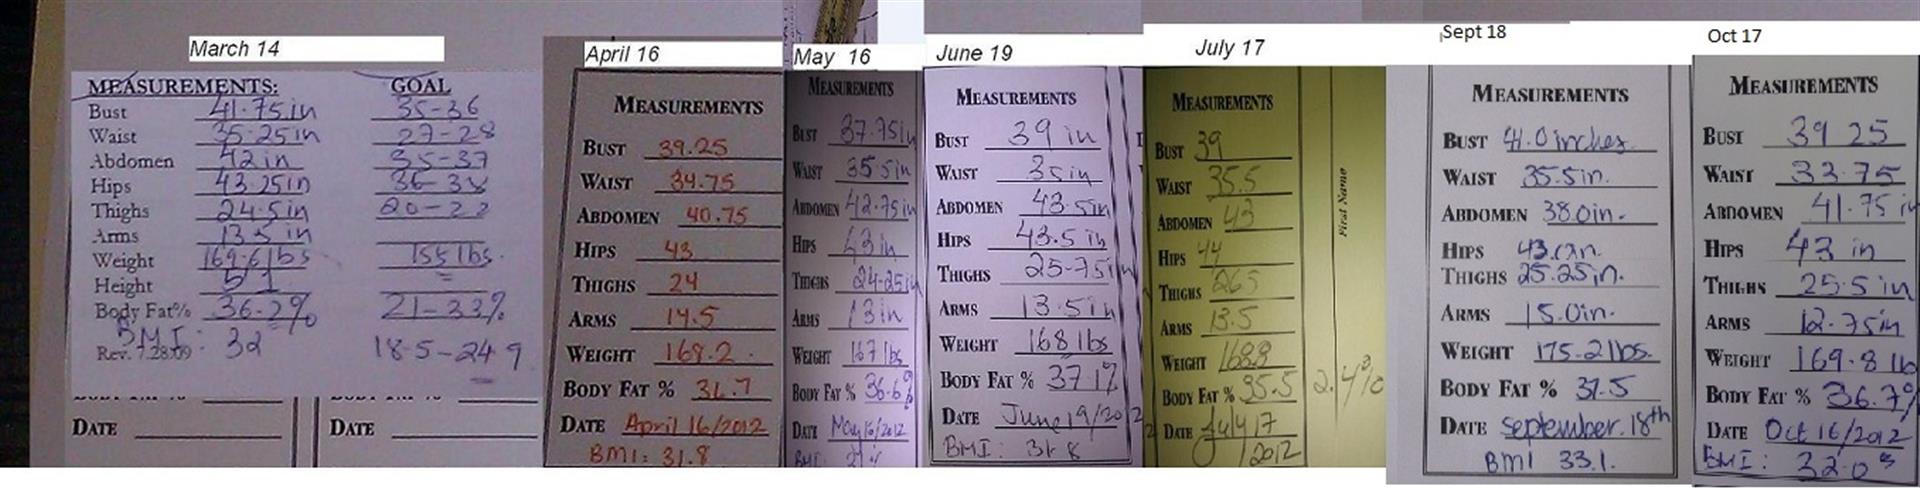 March 14
MEASUREMENTS: GOAL
Bust 41.75in 35-36
Waist 35.25in 27-28
Abdomen 42in 35-37
Hips 43.25in 36-38
Thighs 24.5in 20-22
Arms 13.5 in
Weight 169.6lbs 155 lbs.
Height 5'1
Body Fat% 36.2% 21-33%
BMI: 32 18.5-24.9
Rev. 7.28.09
DATE
DATE
April 16
MEASUREMENTS
BUST 39.25
WAIST 34.75
ABDOMEN 40.75
HIPS 43
THIGHS 24
ARMS 14.5
WEIGHT 168.2
BODY FAT %
DATE April 16/2012
BMI: 31.8
May 16
MEASUREMENTS
BUST 37.75in
WAIST 35.5in
ABDOMEN 42.75in
HIPS 43in
THIGHS 24.25in
ARMS 13in
WEIGHT 167lbs
BODY FAT % 36.6%
DATE May 16/2012
BMI:
June 19
MEASUREMENTS
BUST 39 in
WAIST 35in
ABDOMEN 43.5in
HIPS 43.5 in
THIGHS 25.75in
ARMS 13.5in
WEIGHT 168 lbs
BODY FAT % 37.1%
DATE June 19/2012
BMI: 31.8
July 17
MEASUREMENTS
BUST 39
WAIST 35.5
ABDOMEN 43
HIPS 44
THIGHS 265
ARMS 13.5
WEIGHT
BODY FAT % 35.5 2.4%
DATE July 17
2012
First Name
Sept 18
MEASUREMENTS
BUST 41.0inches
WAIST 35.5in.
ABDOMEN 38.0in.
HIPS 43.0in.
THIGHS 25.25in.
ARMS 15.0in.
WEIGHT 175.2lbs.
BODY FAT % 37.5
DATE september 18th
BMI 33.1.
Oct 17
MEASUREMENTS
BUST 39 25
WAIST 33.75
ABDOMEN 41.75 in
HIPS 43 in
THIGHS 25.5 in
ARMS 12.75in
WEIGHT 169.8 lb
BODY FAT % 36.7%
DATE Oct 16/2012
BMI: 32.0